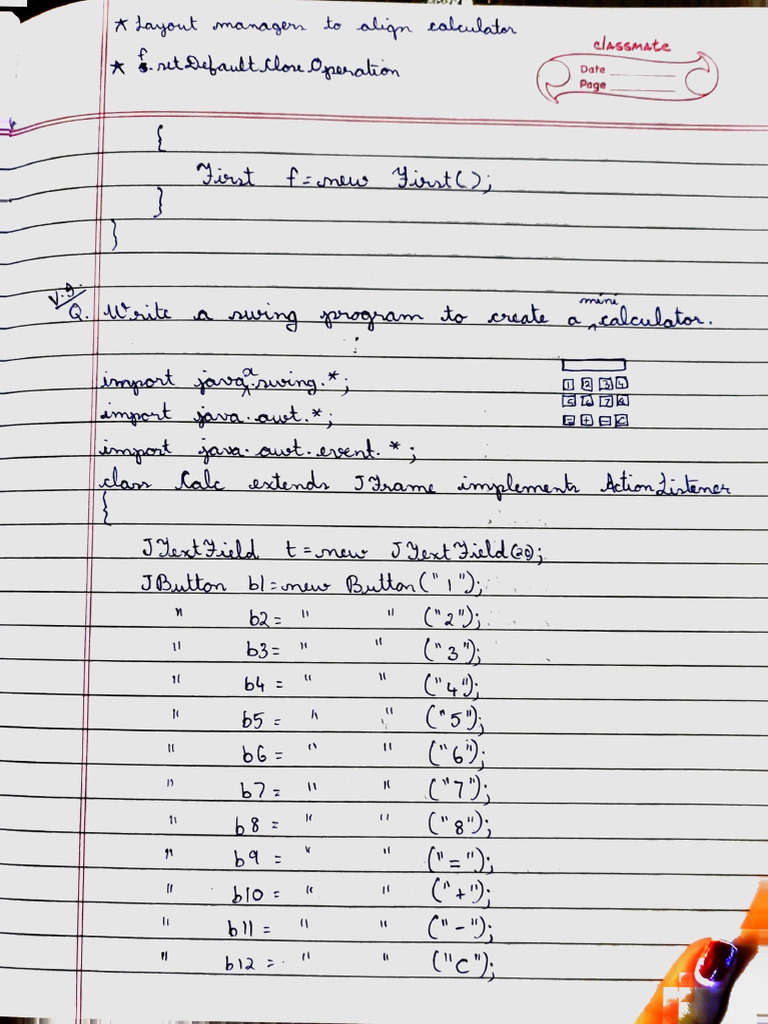 * Layout managers to align calculator
classmate
* f.setDefaultCloseOperation
Date
Page
{
First f=new First();
}
}
V.I.
Q. Write a swing program to create a mini calculator.
:
import javax.swing.*;
1 2 3 4
import java.awt.*;
5 6 7 8
= + - C
import java.awt.event.*;
class Calc extends JFrame implements ActionListener
{
JTextField t=new JTextField(20);
JButton b1=new Button("1");
" b2= " " ("2");
" b3= " " ("3");
" b4 = " " ("4");
" b5 = " " ("5");
" b6 = " " ("6");
" b7 = " " ("7");
" b8 = " " ("8");
" b9 = " " ("=");
" b10 = " " ("+");
" b11 = " " ("-");
" b12 = " " ("C");